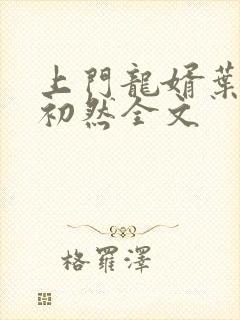 上門龍婿葉
初然全文
格羅澤